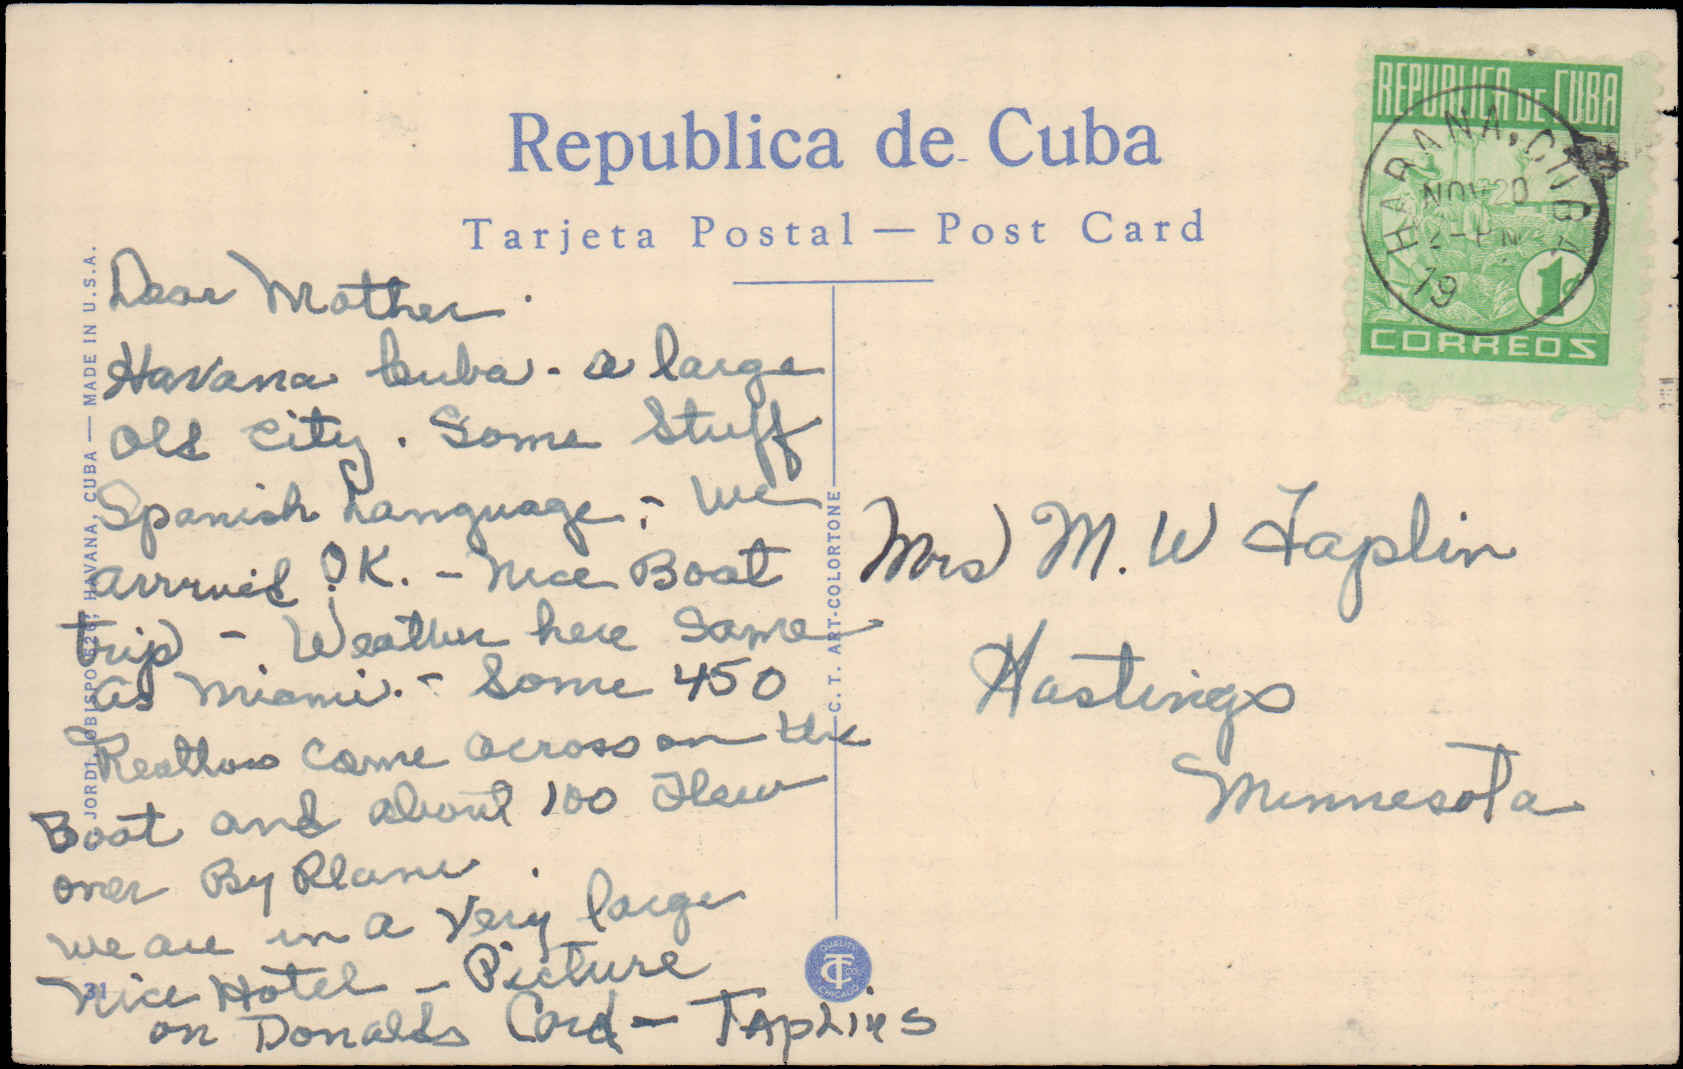 Republica de Cuba
Tarjeta Postal — Post Card
REPUBLICA DE CUBA
HABANA, CUBA
NOV 20
19
1¢
CORREOS
Dear Mother
Havana Cuba - a large
old city. Some Stuff
Spanish Language, - We
arrived O.K. - Nice Boat
trip - Weather here same
as Miami. - Some 450
Realtors came across on the
Boat and about 100 Flew
over By Plane
we are in a very large
nice Hotel - Picture
on Donalds Card - TAplins
Mrs M. W Taplin
Hastings
Minnesota
JORDI, OBISPO HAVANA, CUBA — MADE IN U.S.A.
C. T. ART-COLORTONE
QUALITY
CT CO
CHICAGO
31